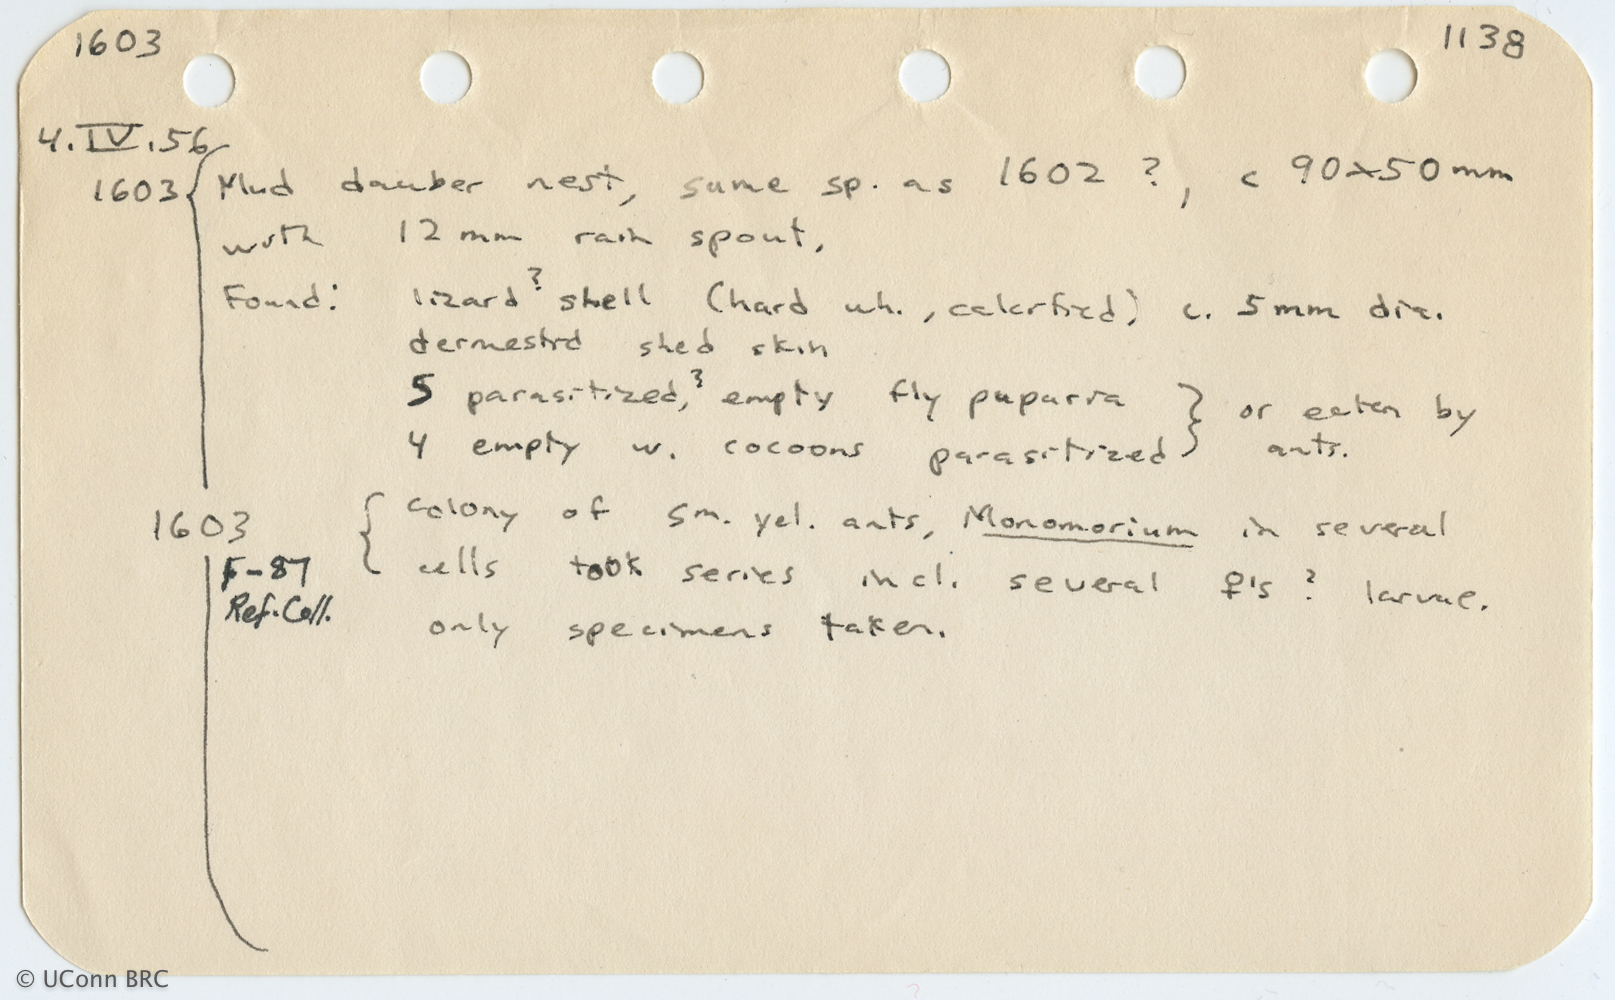 1603 1138
4.IV.56
1603 Mud dauber nest, same sp. as 1602 ?, c 90x50mm
with 12 mm rain spout.
Found: lizard? shell (hard wh., calcified) c. 5mm dia.
dermestid shed skin
5 parasitized,? empty fly puparia } or eaten by
4 empty w. cocoons parasitized } ants.
1603 { colony of sm. yel. ants, Monomorium in several
F-87 cells took series incl. several ♀'s ? larvae.
Ref. Coll. only specimens taken.
© UConn BRC